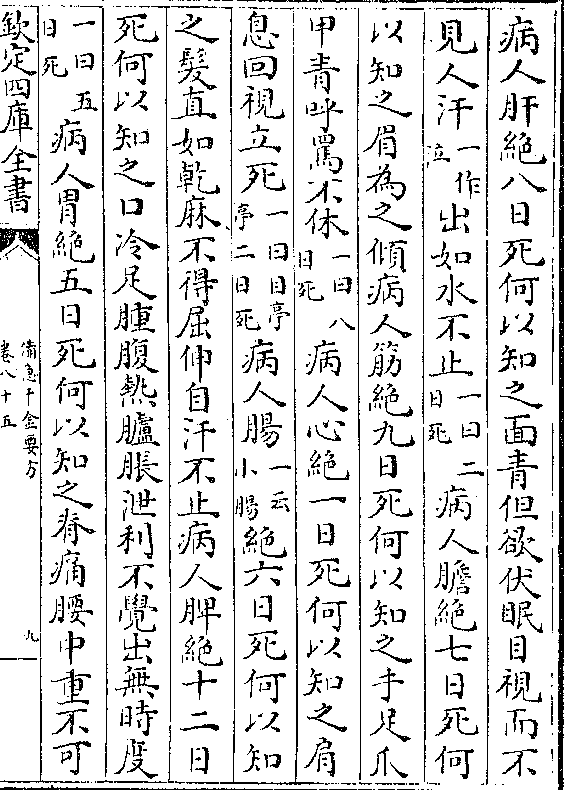 病人肝絶八日死何以知之面青但欲伏眠目視而不
見人汗一作泣出如水不止一曰二日死病人膽絶七日死何
以知之眉為之傾病人筋絶九日死何以知之手足爪
甲青呼罵不休一曰八日死病人心絶一日死何以知之肩
息回視立死一曰目亭亭二日死病人腸一云小腸絶六日死何以知
之髮直如乾麻不得屈伸自汗不止病人脾絶十二日
死何以知之口冷足腫腹熱臚脹泄利不覺出無時度
一曰五日死病人胃絶五日死何以知之脊痛腰中重不可
欽定四庫全書
備急千金要方
卷八十五
九